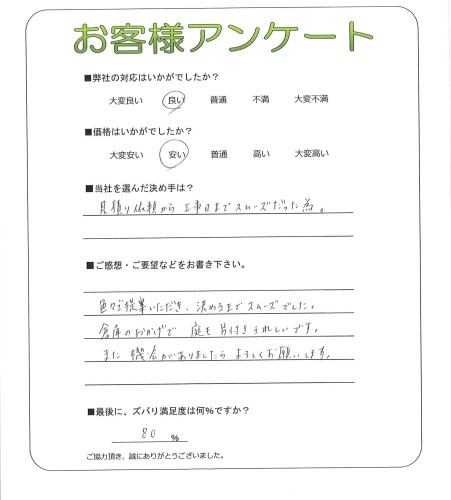 お客様アンケート
■弊社の対応はいかがでしたか？
大変良い 良い 普通 不満 大変不満
■価格はいかがでしたか？
大変安い 安い 普通 高い 大変高い
■当社を選んだ決め手は？
見積り依頼から工事日までスムーズだった為。
■ご感想・ご要望などをお書き下さい。
色々ご提案いただき、決めるまでスムーズでした。
倉庫のおかげで庭も片付きうれしいです。
また機会がありましたらよろしくお願いします。
■最後に、ズバリ満足度は何%ですか？
80 %
ご協力頂き、誠にありがとうございました。